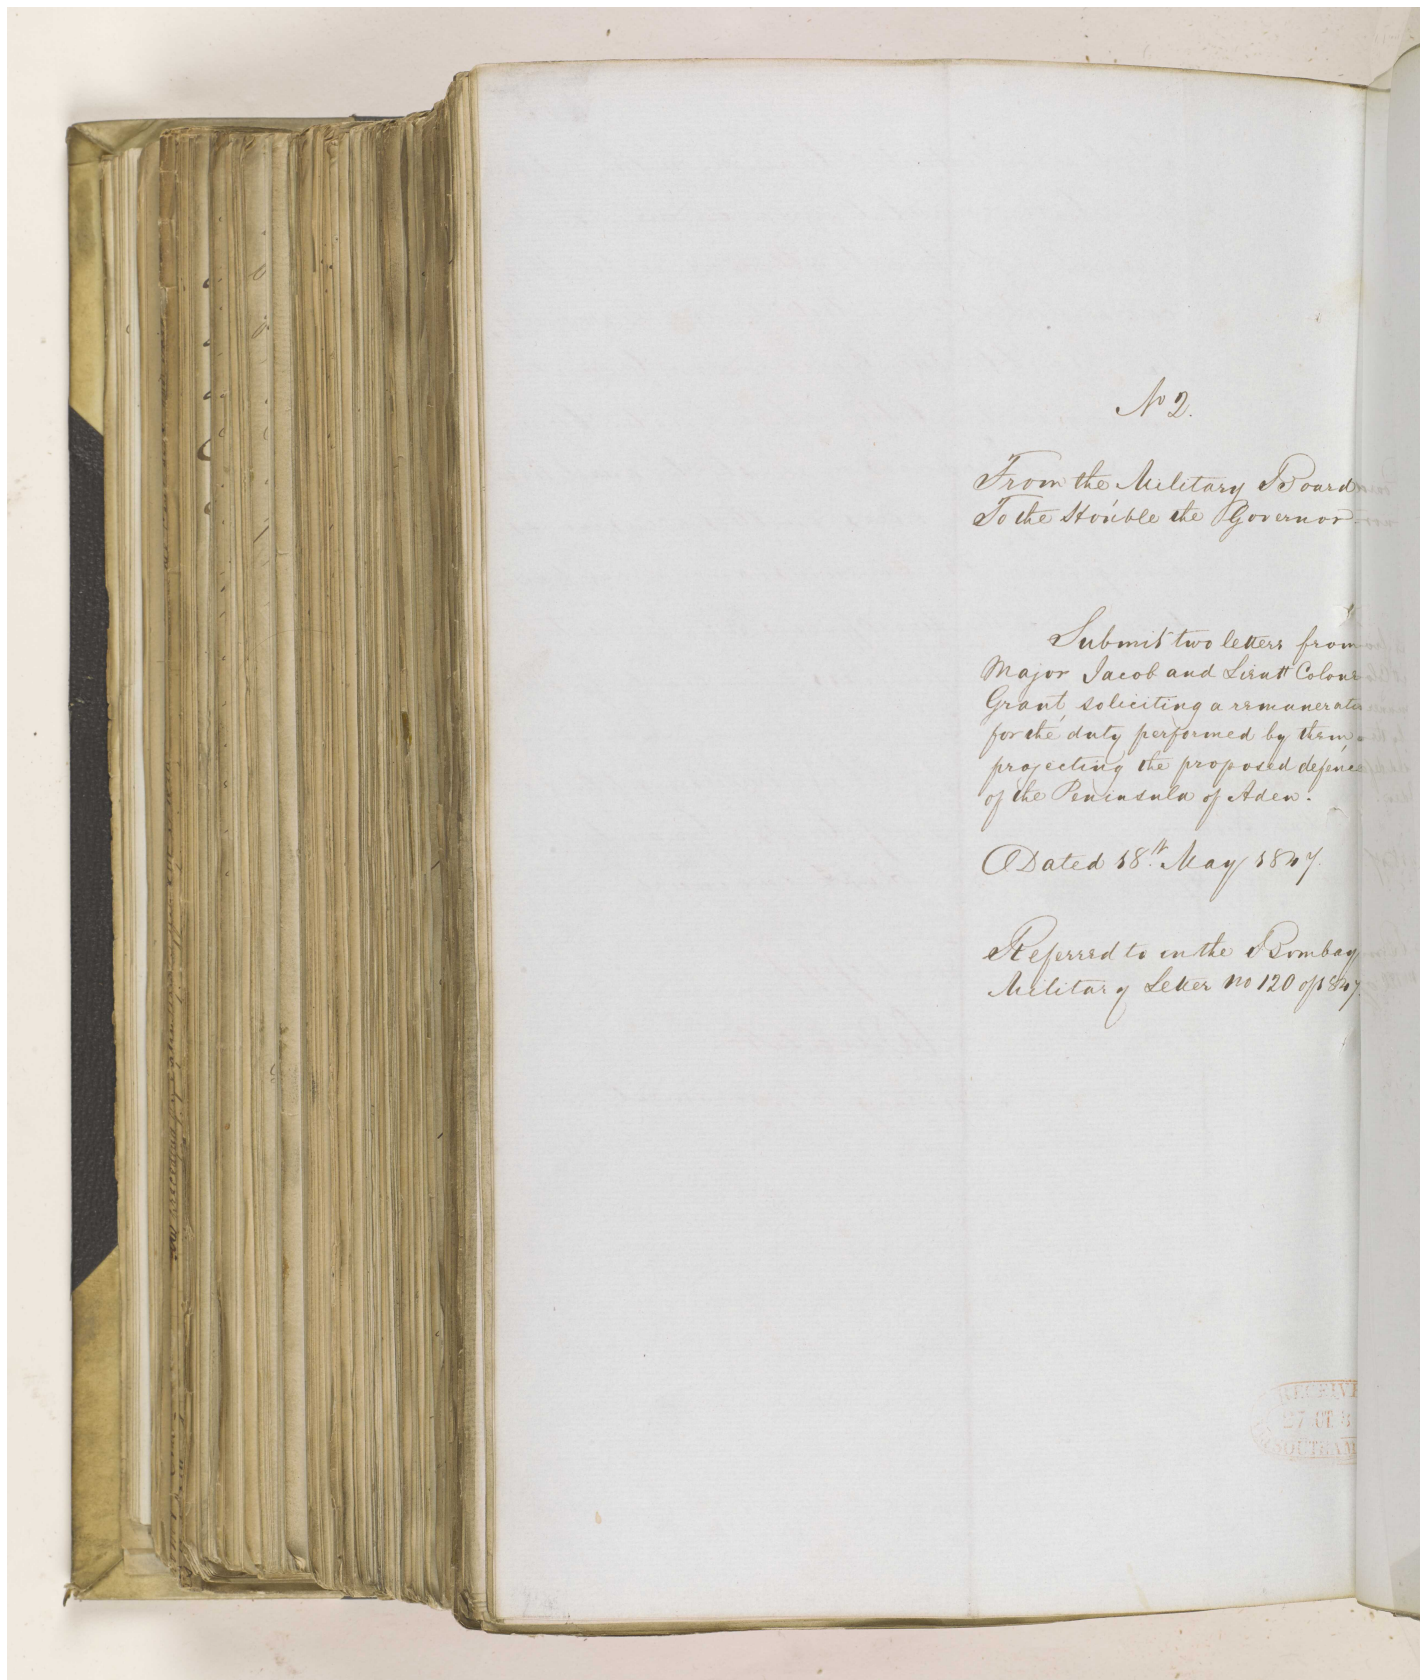 No 2.
From the Military Board
To the Hon'ble the Governor
Submit two letters from
Major Jacob and Lieutt Colone
Grant, soliciting a remuneratio
for the duty performed by them,
projecting the proposed defence
of the Peninsula of Aden.
Dated 18th. May 1847.
Referred to in the Bombay
Military Letter no 120 of 1847.
RECEIVE
27
SOUTHAM